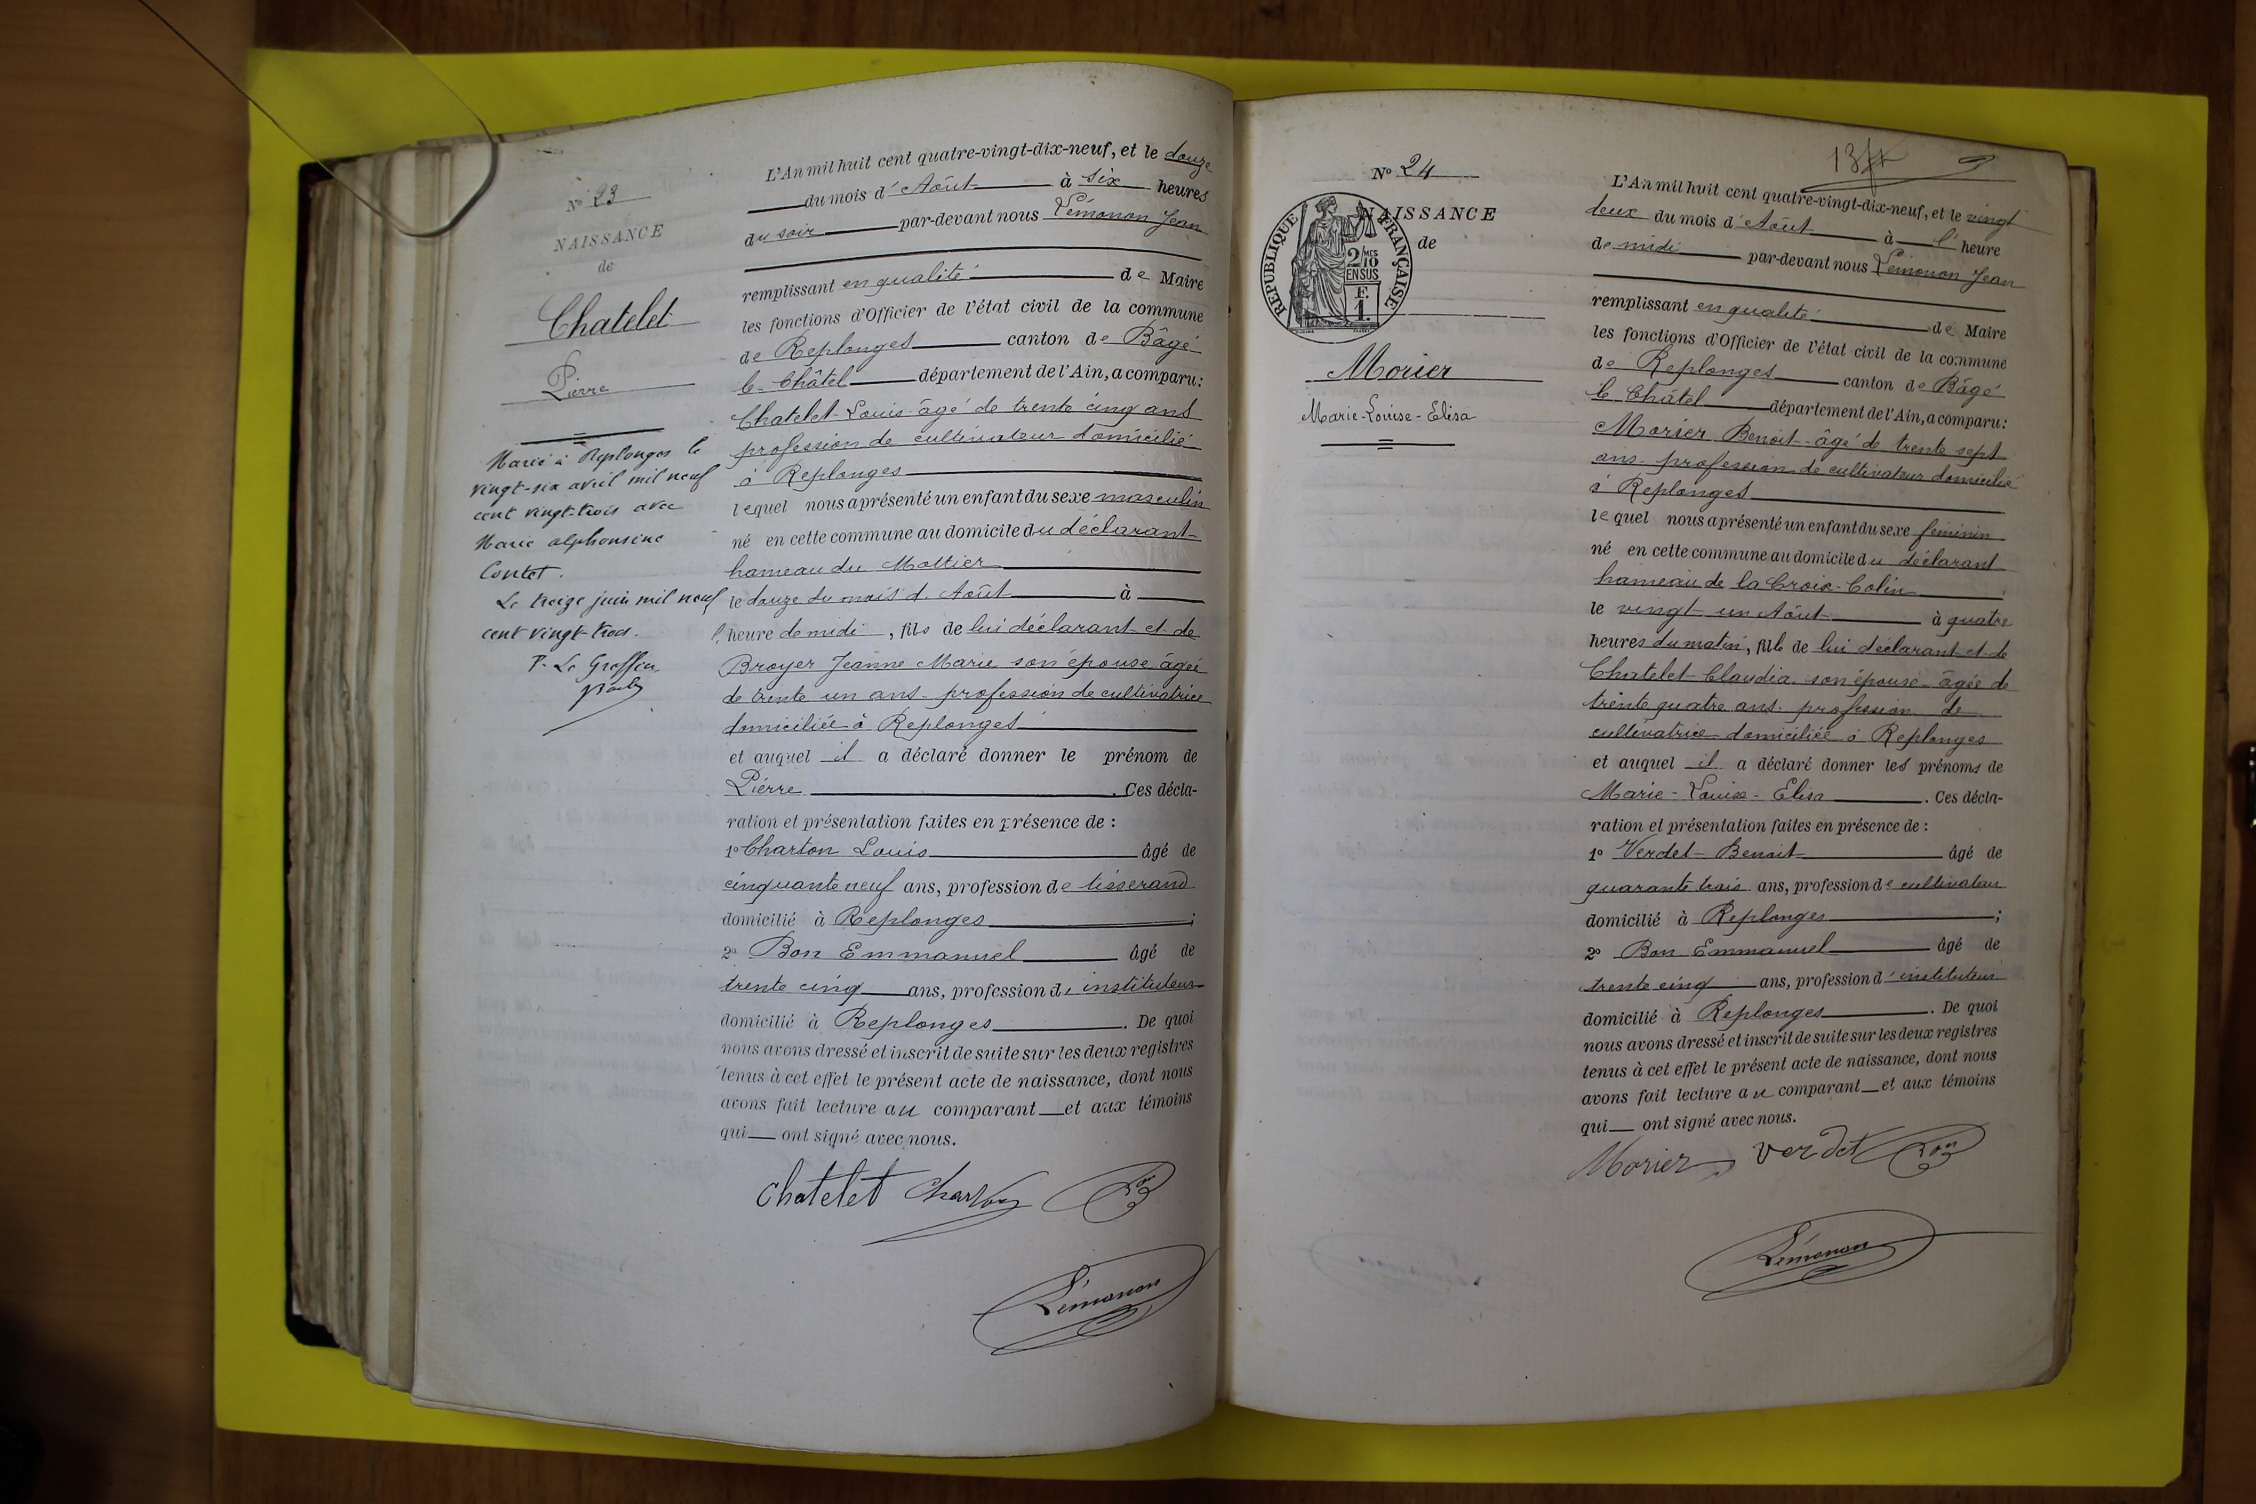 N° 23
NAISSANCE
de
Chatelet
Pierre
Marié à Replonges le
vingt-six avril mil neuf
cent vingt-trois avec
Marie alphonsine
Contet.
Le treize juin mil neuf
cent vingt-trois.
P. Le Greffier
L'An mil huit cent quatre-vingt-dix-neuf, et le douze
du mois d'Août à six heures
du soir par-devant nous Lémonon Jean
remplissant en qualité de Maire
les fonctions d'Officier de l'état civil de la commune
de Replonges canton de Bâgé
le Châtel département de l'Ain, a comparu:
Chatelet Louis âgé de trente cinq ans
profession de cultivateur domicilié
à Replonges
lequel nous a présenté un enfant du sexe masculin
né en cette commune au domicile du déclarant
hameau du Mottier
le douze du mois d'Août à
l'heure de midi, fils de lui déclarant et de
Broyer Jeanne Marie son épouse âgée
de trente un ans profession de cultivatrice
domiciliée à Replonges
et auquel il a déclaré donner le prénom de
Pierre. Ces décla-
ration et présentation faites en présence de :
1° Charton Louis âgé de
cinquante neuf ans, profession de tisserand
domicilié à Replonges;
2° Bon Emmanuel âgé de
trente cinq ans, profession d'instituteur
domicilié à Replonges. De quoi
nous avons dressé et inscrit de suite sur les deux registres
tenus à cet effet le présent acte de naissance, dont nous
avons fait lecture au comparant et aux témoins
qui ont signé avec nous.
Chatelet Charton Bon
Lémonon
N° 24
NAISSANCE
de
REPUBLIQUE FRANÇAISE
2/10 MES
EN SUS
F.
1.
Morier
Marie-Louise-Elisa
L'An mil huit cent quatre-vingt-dix-neuf, et le vingt
deux du mois d'Août à l'heure
de midi par-devant nous Lémonon Jean
remplissant en qualité de Maire
les fonctions d'Officier de l'état civil de la commune
de Replonges canton de Bâgé
le Châtel département de l'Ain, a comparu:
Morier Benoit âgé de trente sept
ans profession de cultivateur domicilié
à Replonges
lequel nous a présenté un enfant du sexe féminin
né en cette commune au domicile du déclarant
hameau de la Croix-Colin
le vingt un Août à quatre
heures du matin, fille de lui déclarant et de
Chatelet Claudia son épouse âgée de
trente quatre ans profession de
cultivatrice domiciliée à Replonges
et auquel il a déclaré donner les prénoms de
Marie-Louise-Elisa. Ces décla-
ration et présentation faites en présence de :
1° Verdet Benoit âgé de
quarante trois ans, profession de cultivateur
domicilié à Replonges;
2° Bon Emmanuel âgé de
trente cinq ans, profession d'instituteur
domicilié à Replonges. De quoi
nous avons dressé et inscrit de suite sur les deux registres
tenus à cet effet le présent acte de naissance, dont nous
avons fait lecture au comparant et aux témoins
qui ont signé avec nous.
Morier verdet Bon
Lémonon